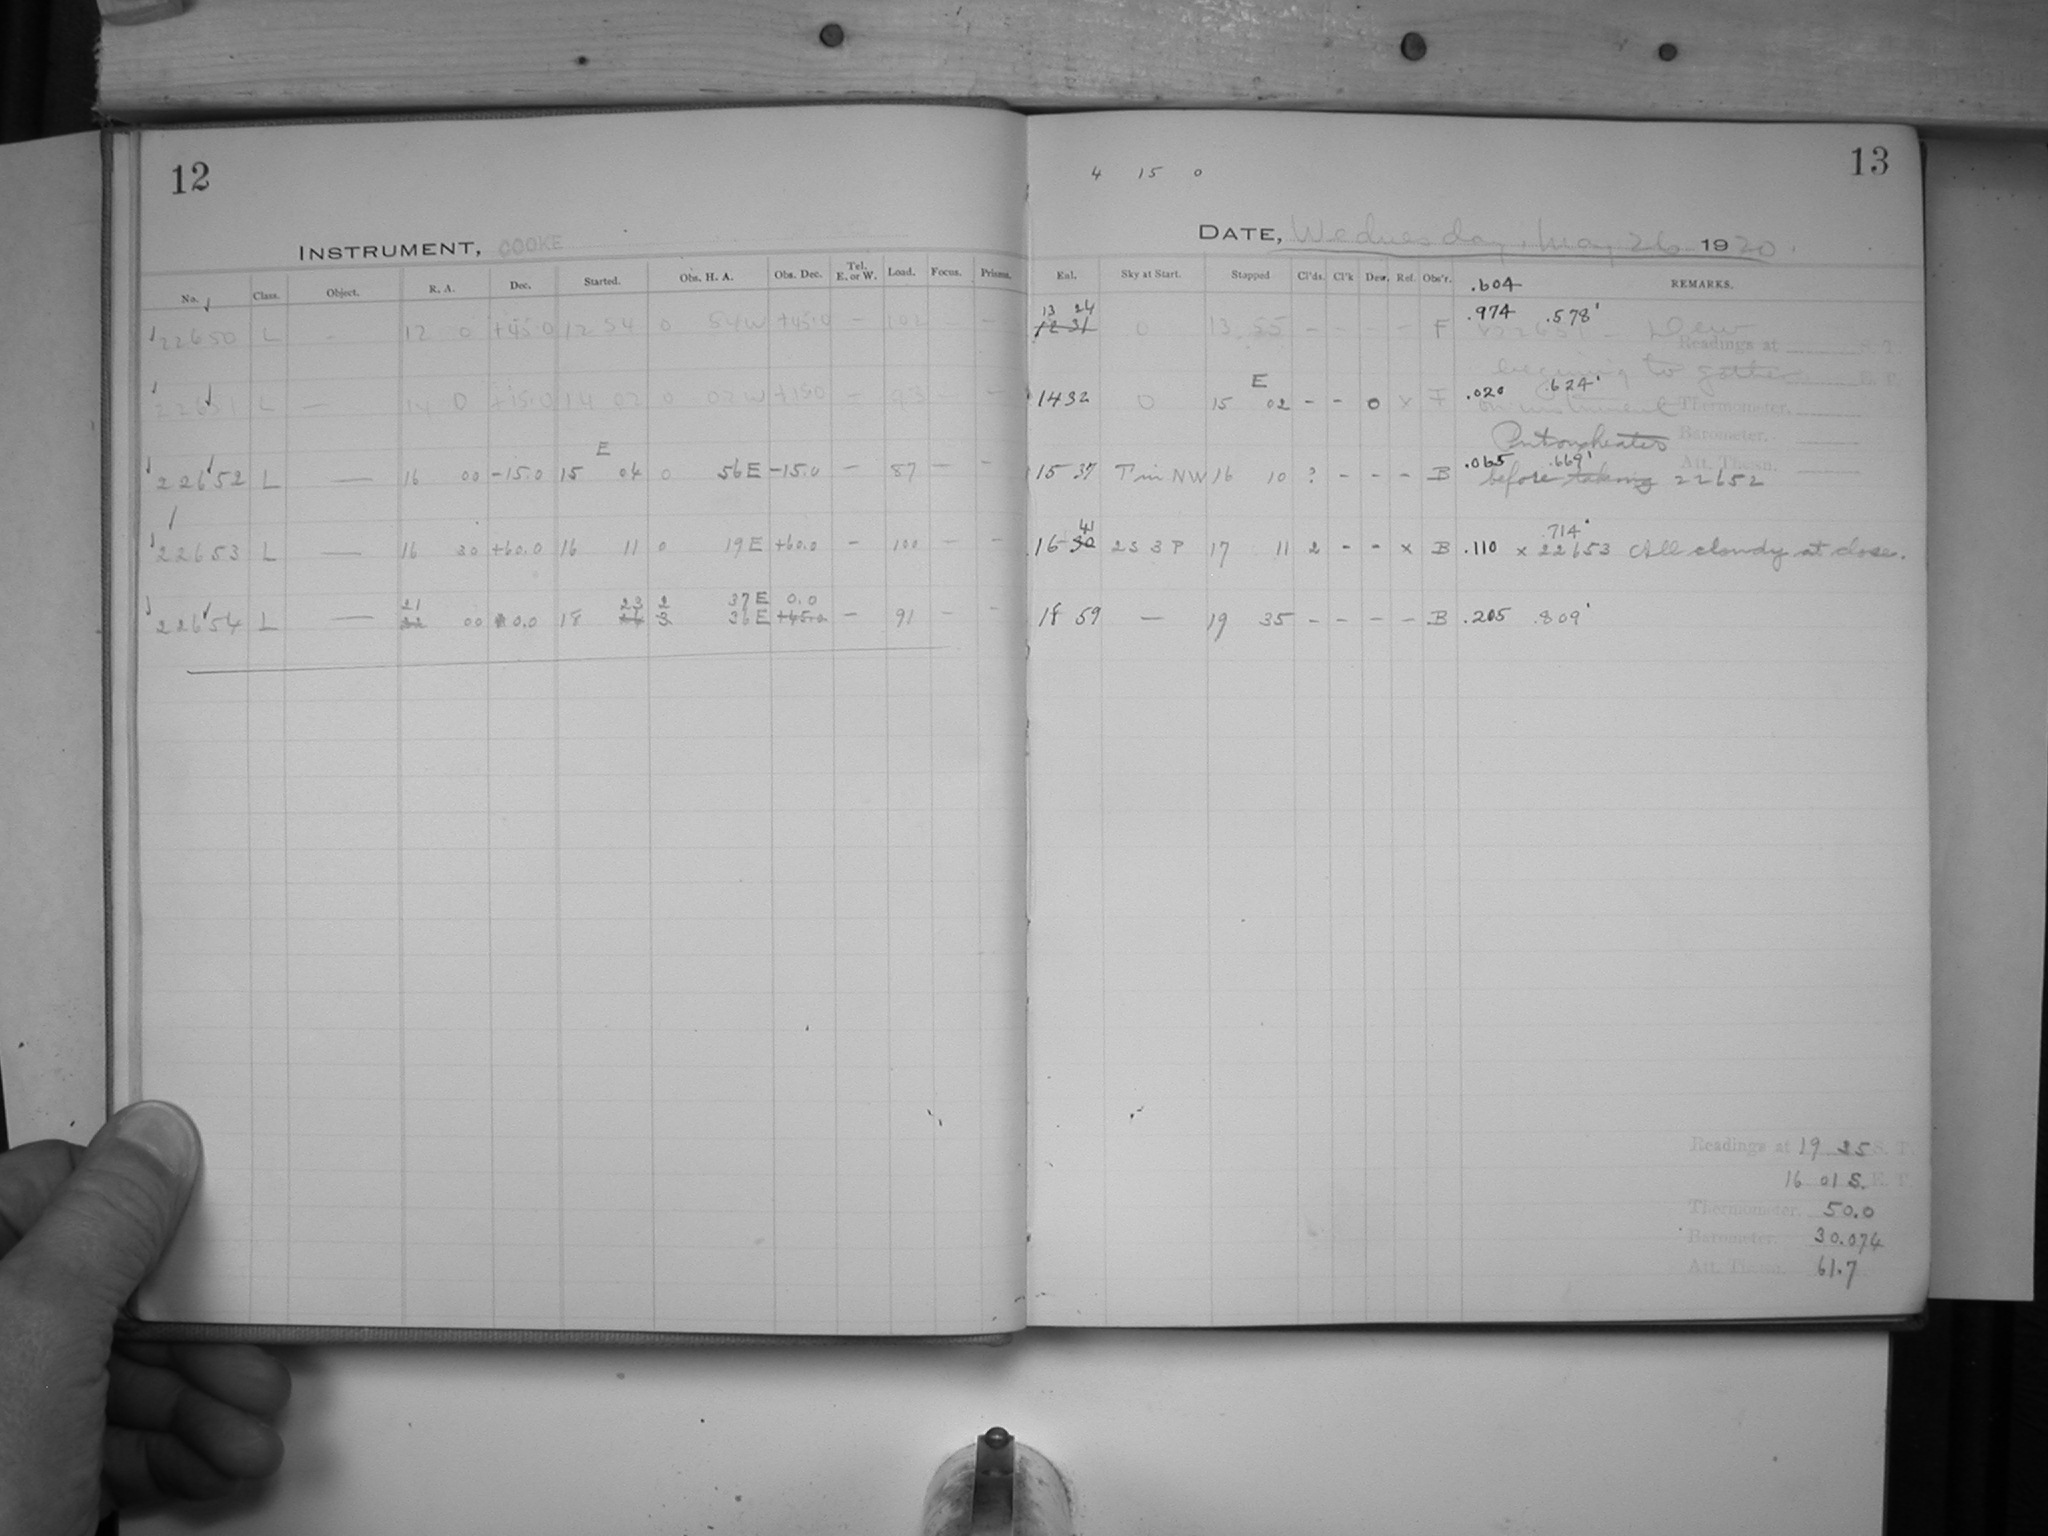 12
INSTRUMENT, COOKE
No. Class. Object. R. A. Dec. Started. Obs. H. A. Obs. Dec. Tel. E. or W. Load. Focus. Prisms.
22650 L - 12 0 +45.0 12 54 0 54W +45.0 - 102 - -
22651 L — 14 0 +15.0 14 02 0 02W +15.0 - 93 - -
E
22652 L — 16 00 -15.0 15 04 0 56E -15.0 - 87 - -
22653 L — 16 30 +60.0 16 11 0 19E +60.0 - 100 - -
21 23 2 37E 0.0
22654 L — 00 0.0 18 3 36E +45.0 - 91 - -
13
4 15 0
DATE, Wednesday, May 26 1920.
Eal. Sky at Start. Stopped Cl'ds. Cl'k Dew. Ref. Obs'r. REMARKS.
.604
13 24
12 31 0 13 55 - - - - F .974 .578'
22651 - Dew
Readings at S. T.
beginning to gather E. T.
E
14 32 0 15 02 - - 0 x F .020 .624'
on instrument Thermometer,
Put on heater Barometer.
15 37 T in NW 16 10 ? - - - B .065 .669' Att. Therm.
before taking 22652
41 .714'
16 30 2S 3P 17 11 2 - - x B .110 x 22653 All cloudy at close.
18 59 — 19 35 - - - - B .205 .809'
Readings at 19 35 S. T.
16 01 S. E. T.
Thermometer, 50.0
Barometer. 30.074
Att. Therm. 61.7